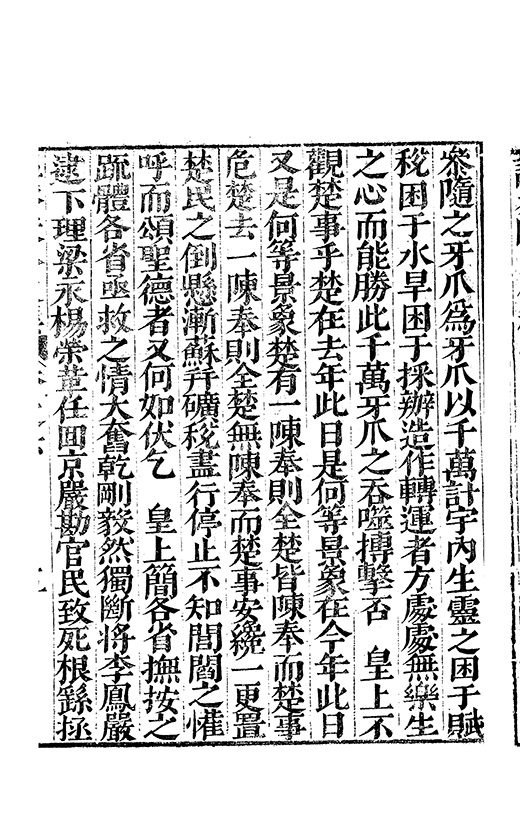 叅隨之牙爪爲牙爪以千萬計宇內生靈之困于賦
稅困于水旱困于採辦造作轉運者方處處無樂生
之心而能勝此千萬牙爪之吞噬搏擊否　皇上不
觀楚事乎楚在去年此日是何等景象在今年此日
又是何等景象楚有一陳奉則全楚皆陳奉而楚事
危楚去一陳奉則全楚無陳奉而楚事安纔一更置
楚民之倒懸漸蘇幷礦稅盡行停止不知閭閻之懽
呼而頌聖德者又何如伏乞　皇上簡各省撫按之
䟽體各省亟救之情大奮乾剛毅然獨斷將李鳳嚴
逮下理梁永楊榮葷任回京嚴勘官民致死根繇拯